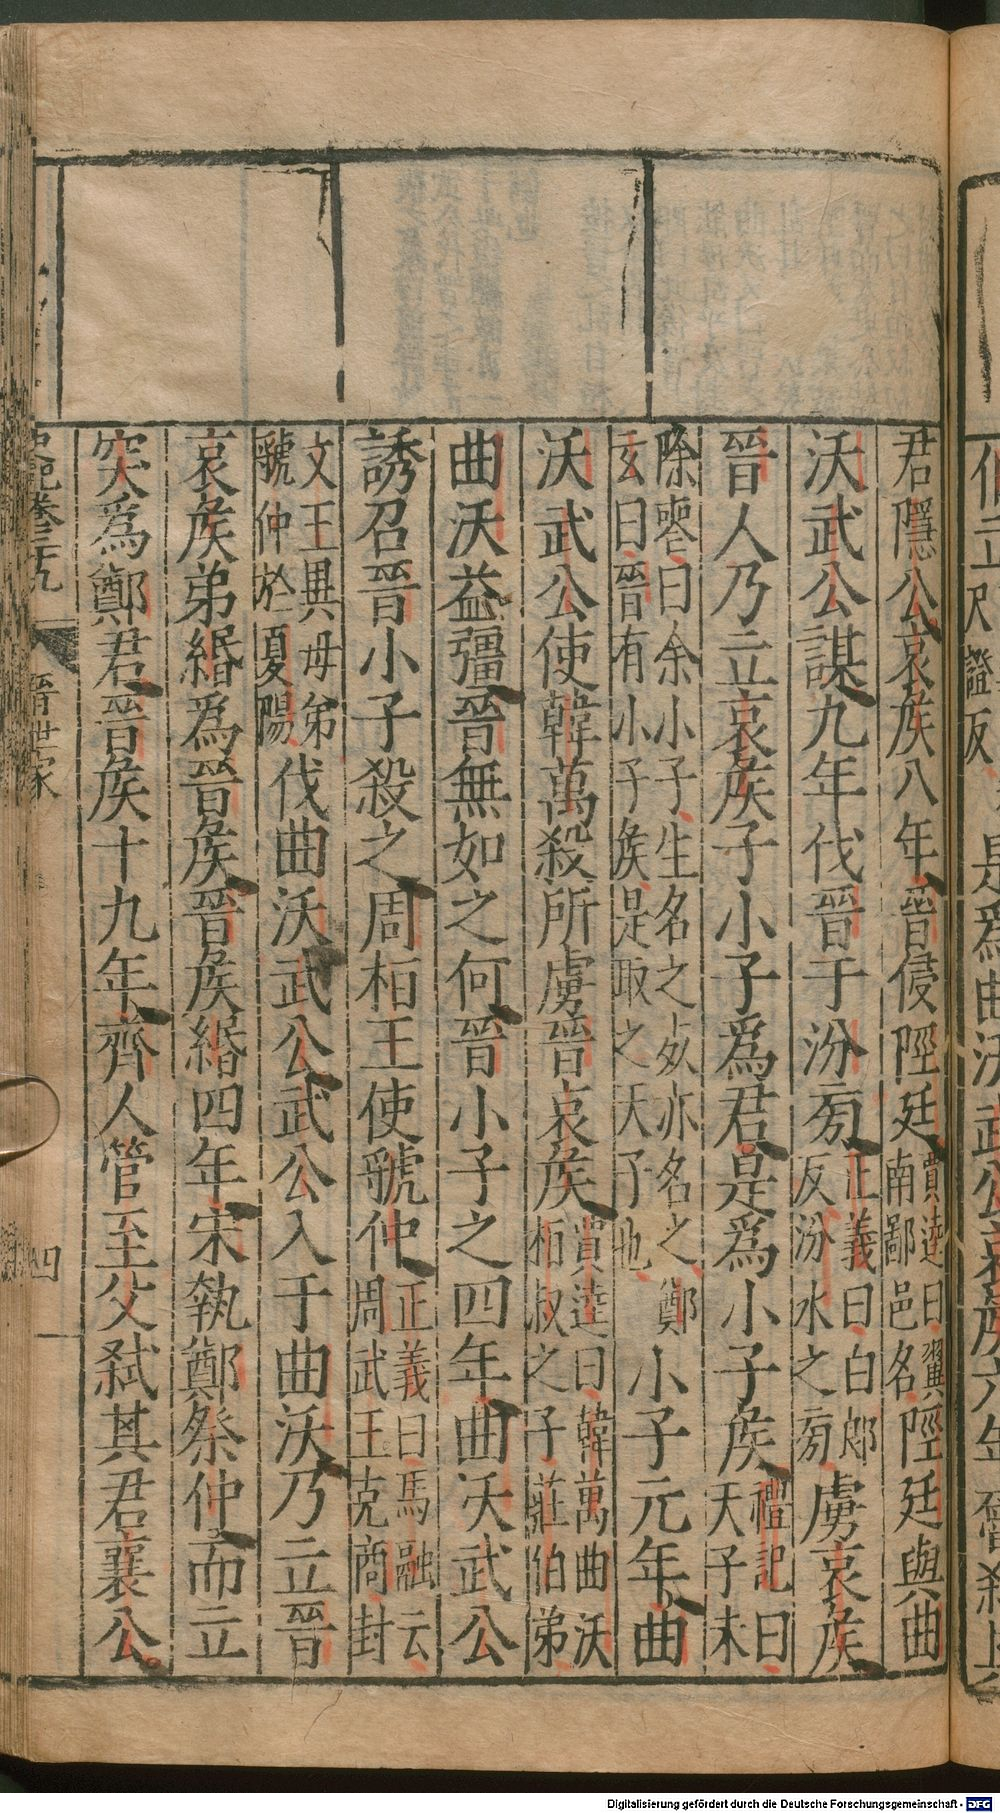 是爲曲沃武公哀侯六年
君隱公哀侯八年晉侵陘廷賈逵曰翼南鄙邑名陘廷與曲
沃武公謀九年伐晉于汾旁正義曰白郎反汾水之旁虜哀侯
晉人乃立哀侯子小子爲君是爲小子侯禮記曰天子未
除喪曰余小子生名之死亦名之鄭玄曰晉有小子侯是取之天子也小子元年曲
沃武公使韓萬殺所虜晉哀侯賈逵曰韓萬曲沃桓叔之子莊伯弟
曲沃益彊晉無如之何晉小子之四年曲沃武公
誘召晉小子殺之周桓王使虢仲正義曰馬融云周武王克商封
文王異母弟虢仲於夏陽伐曲沃武公武公入于曲沃乃立晉
哀侯弟緡爲晉侯晉侯緡四年宋執鄭祭仲而立
突爲鄭君晉侯十九年齊人管至父弑其君襄公
史記卷三十九 晉世家 四
Digitalisierung gefördert durch die Deutsche Forschungsgemeinschaft - DFG